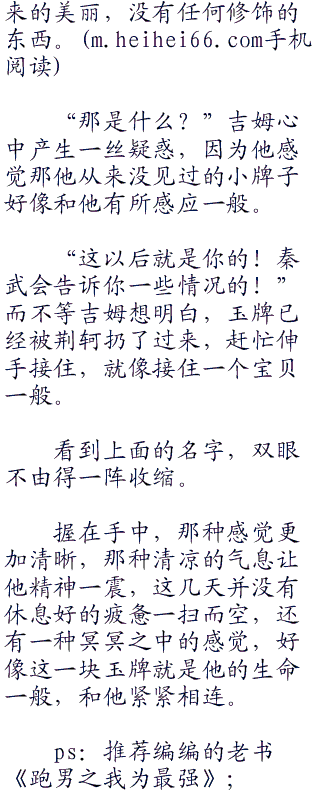 来的美丽，没有任何修饰的
东西。(m.heihei66.com手机
阅读)
“那是什么？”吉姆心
中产生一丝疑惑，因为他感
觉那他从来没见过的小牌子
好像和他有所感应一般。
“这以后就是你的！秦
武会告诉你一些情况的！”
而不等吉姆想明白，玉牌已
经被荆轲扔了过来，赶忙伸
手接住，就像接住一个宝贝
一般。
看到上面的名字，双眼
不由得一阵收缩。
握在手中，那种感觉更
加清晰，那种清凉的气息让
他精神一震，这几天并没有
休息好的疲惫一扫而空，还
有一种冥冥之中的感觉，好
像这一块玉牌就是他的生命
一般，和他紧紧相连。
ps：推荐编编的老书
《跑男之我为最强》；